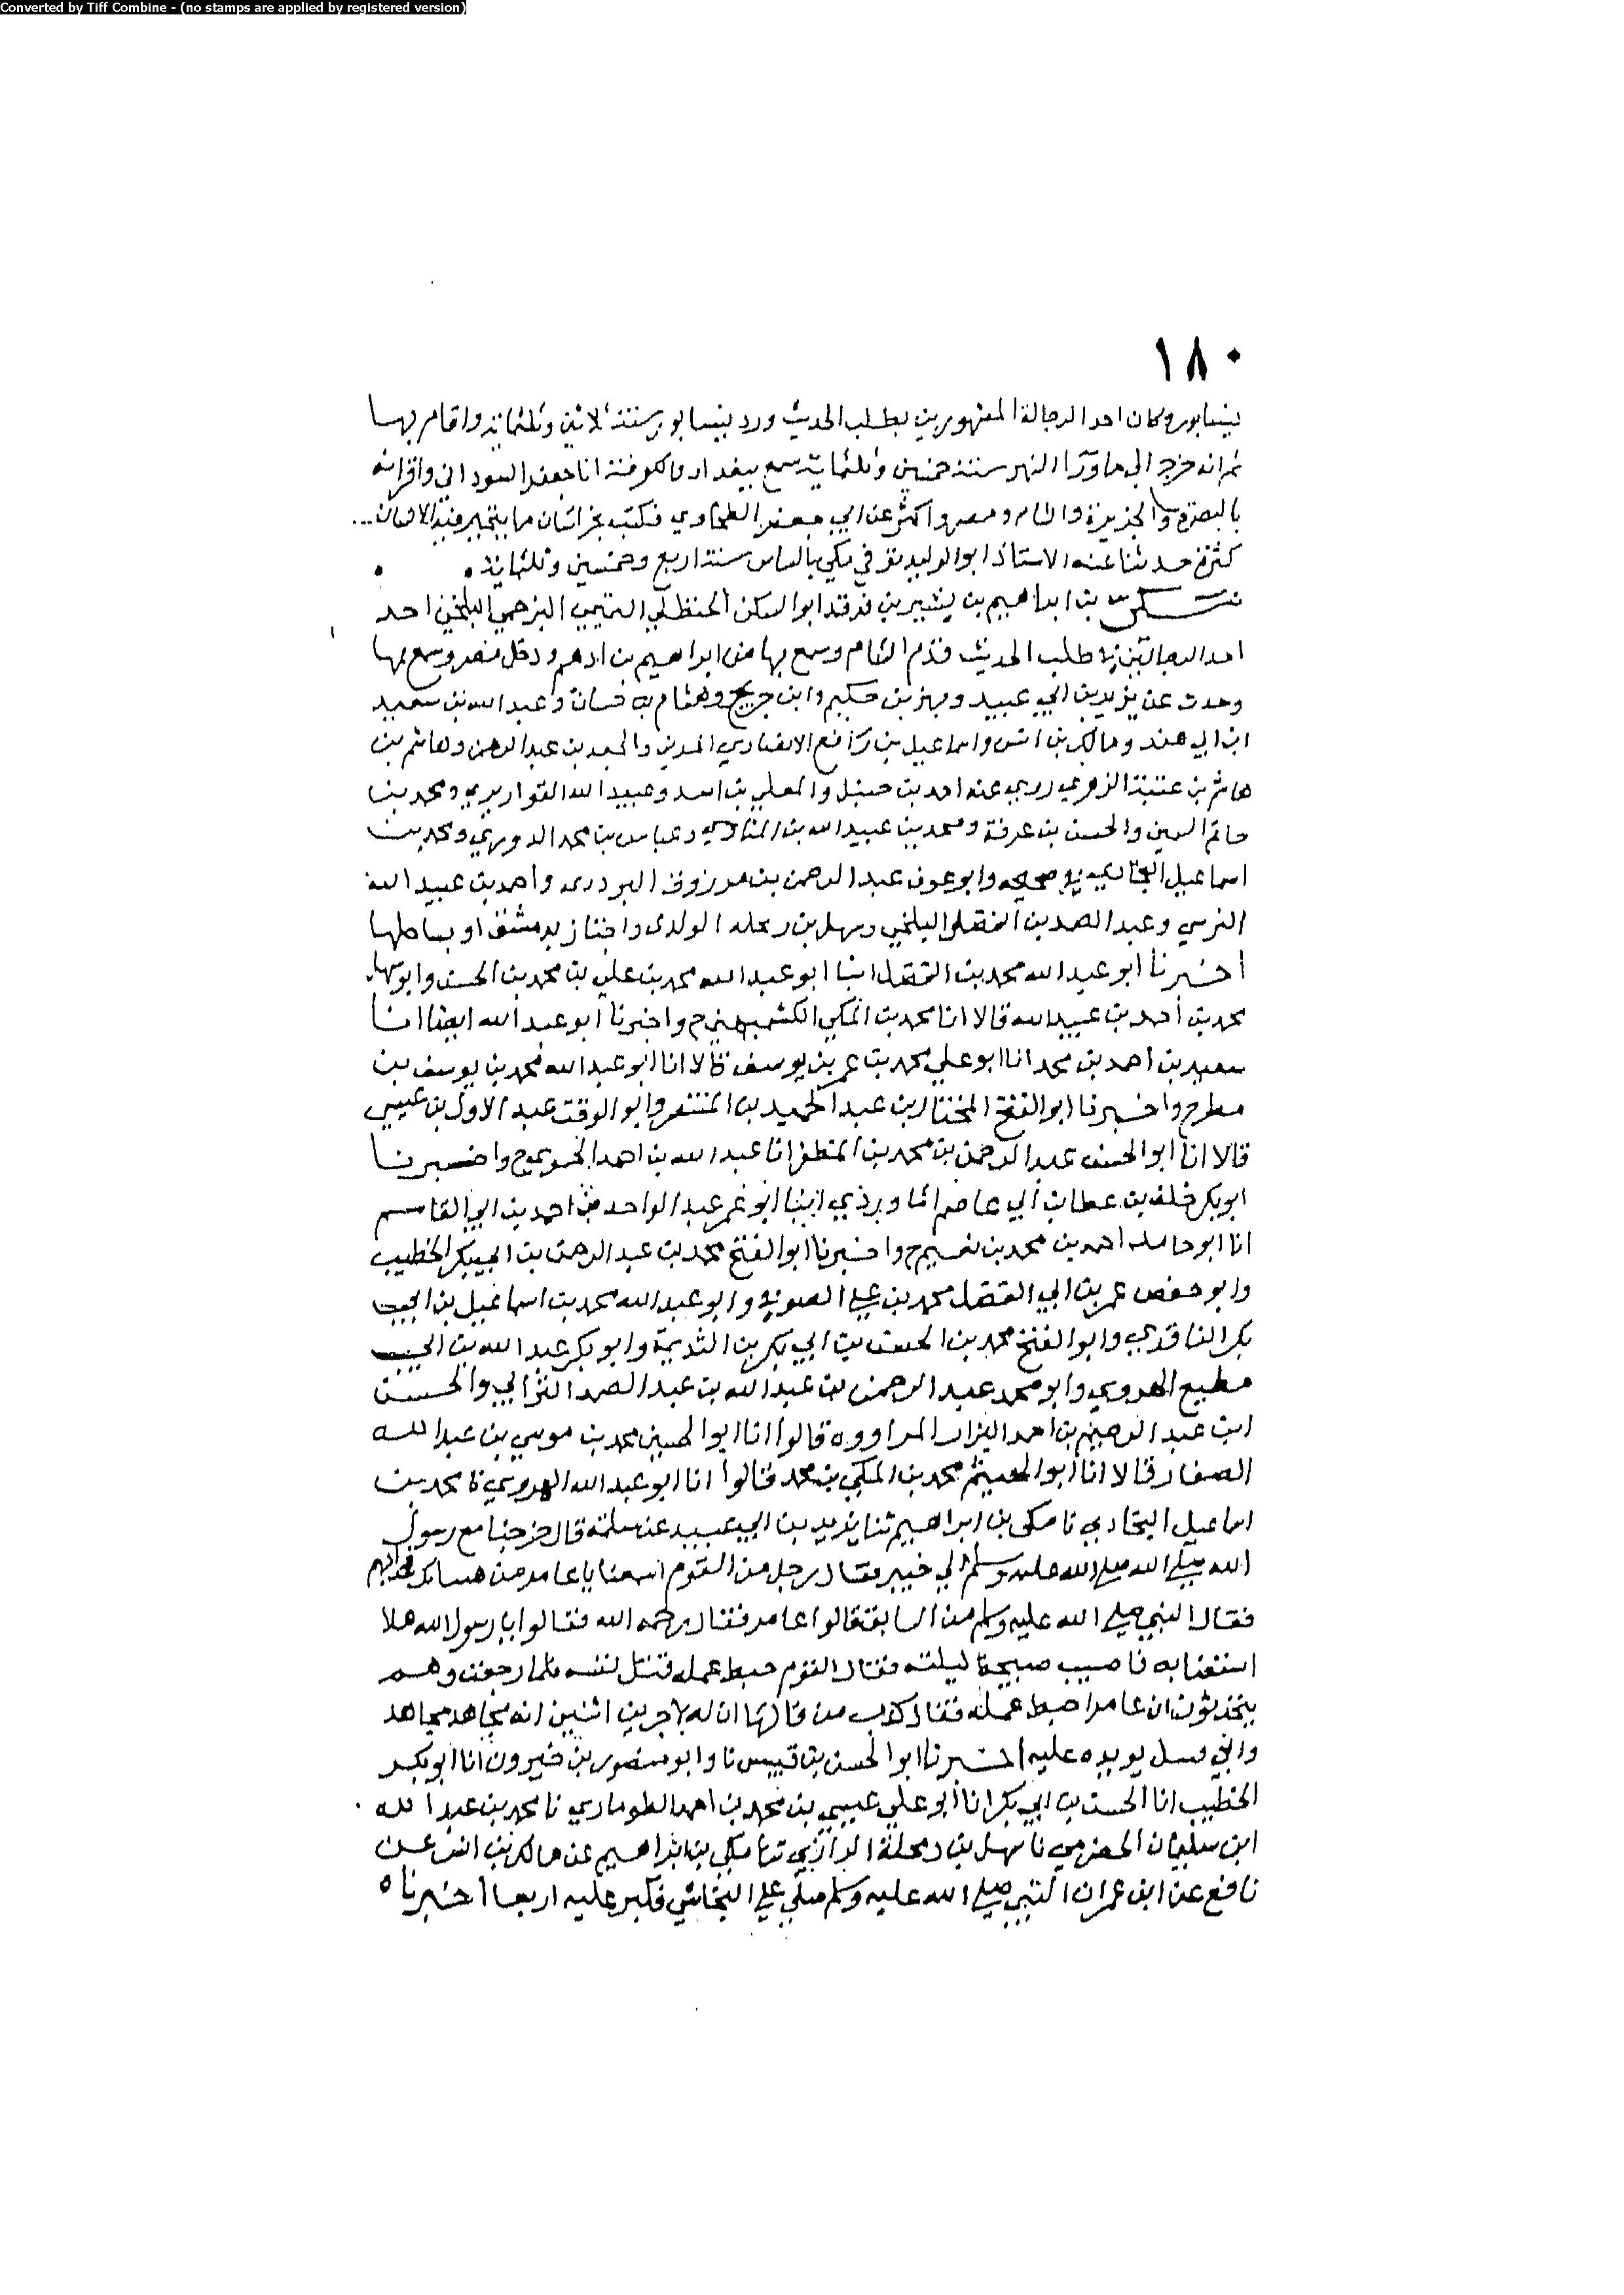 Converted by Tiff Combine - (no stamps are applied by registered version)
١٨٠
بنيسابور وكان احد الرحالة المشهورين بطلب الحديث ورد نيسابور سنة ثلاثين وثلثماية واقام بها
ثم انه خرج الى ماورآ النهر سنة خمسين وثلثماية سمع ببغداد والكوفة ابا جعفر السوداني واقرانه
بالبصرة والجزيرة والشام ومصر واكثر عن ابي جعفر الطحاوي فكتب بخراسان ما يتحير فيه الانسان
كثرة حدثنا عنه الاستاذ ابو الوليد توفي مكي بالشاس سنة اربع وخمسين وثلثماية
بن ابراهيم بن بشير بن فرقد ابو السكن الحنظلي التميمي البرجمي البلخي احد
احد الرحالين في طلب الحديث قدم الشام وسمع بها من ابراهيم بن ادهم ودخل مصر وسمع بها
وحدث عن يزيد بن ابي عبيد وبهز بن حكيم وابن جريج وهشام بن حسان وعبد الله بن سعيد
ابن ابي هند ومالك بن انس واسماعيل بن رافع الانصاري المدني والجعد بن عبد الرحمن وهاشم بن
هاشم بن عتبة الزهري روى عنه احمد بن حنبل والمعلي بن اسد وعبيد الله القواريري ومحمد بن
حاتم السمين والحسن بن عرفة ومحمد بن عبيد الله بن المنادي وعباس بن محمد الدوري ومحمد بن
اسماعيل البخاري في صحيحه وابو عوف عبد الرحمن بن مرزوق البزوري واحمد بن عبيد الله
النرسي وعبد الصمد بن الفضل البلخي وسهل بن زنجلة الرازي واجتاز بدمشق او بساحلها
اخبرنا ابو عبد الله محمد بن الفضل انبا ابو عبد الله محمد بن علي بن محمد بن الحسن وابو سهل
محمد بن احمد بن عبيد الله قالا انا محمد بن المكي الكشميهني ح واخبرنا ابو عبد الله ايضا انا
سعيد بن احمد بن محمد انا ابو علي محمد بن عمر بن يوسف قالا انا ابو عبد الله محمد بن يوسف بن
مطر ح واخبرنا ابو الفتح المختار بن عبد الحميد بن المنتصر وابو الوقت عبد الاول بن عيسى
قالا انا ابو الحسن عبد الرحمن بن محمد بن المظفر انا عبد الله بن احمد الحمويي ح واخبرنا
ابو بكر خلف بن عطا بن ابي عاصم الماوردي انبا ابو عمر عبد الواحد بن احمد بن ابي القاسم
انا ابو حامد احمد بن محمد بن نعيم ح واخبرنا ابو الفتح محمد بن عبد الرحمن بن ابي بكر الخطيب
وابو حفص عمر بن ابي الفضل محمد بن علي الصوفي وابو عبد الله محمد بن اسماعيل بن ابي
بكر الناقدي وابو الفتح محمد بن الحسن بن ابي بكر بن وابو بكر عبد الله بن ابي
مطيع الهروي وابو محمد عبد الرحمن بن عبد الله بن عبد الصمد الترابي والحسن
ابن عبد الرحيم بن احمد البزاز المراوزه قالوا انا ابو الخير محمد بن موسى بن عبد الله
الصفار قالا انا ابو الهيثم محمد بن المكي بن محمد قالوا انا ابو عبد الله الهروي نا محمد بن
اسماعيل البخاري نا مكى بن ابراهيم ثنا يزيد بن ابي عبيد عن سلمة قال خرجنا مع رسول
الله صلى الله عليه وسلم الي خيبر فقال رجل من القوم اسمعنا يا عامر من هنياتك فحدابهم
فقال النبي صلى الله عليه وسلم من السايق قالوا عامر فقال رحمه الله فقالوا يا رسول الله هلا
استعنا به فاصيب صبيحة ليلته فقال القوم حبط عمله قتل نفسه فلما رجعت وهم
يتحدثون ان عامرا حبط عمله فقال كذب من قالها ان له لاجرين اثنين انه لجاهد مجاهد
عليه اخبرنا ابو الحسن بن قبيس نا وابو منصور بن خيرون انا ابو بكر
الخطيب انا الحسن بن ابي بكر انا ابو علي عيسى بن محمد بن احمد الطوماري نا محمد بن عبد الله
ابن سليمان الحضرمي نا سهل بن زنجلة الرازي ثنا مكي بن ابراهيم عن مالك بن انس عن
نافع عن ابن عمر ان النبي صلى الله عليه وسلم صلي على النجاشي فكبر عليه اربعا اخبرناه